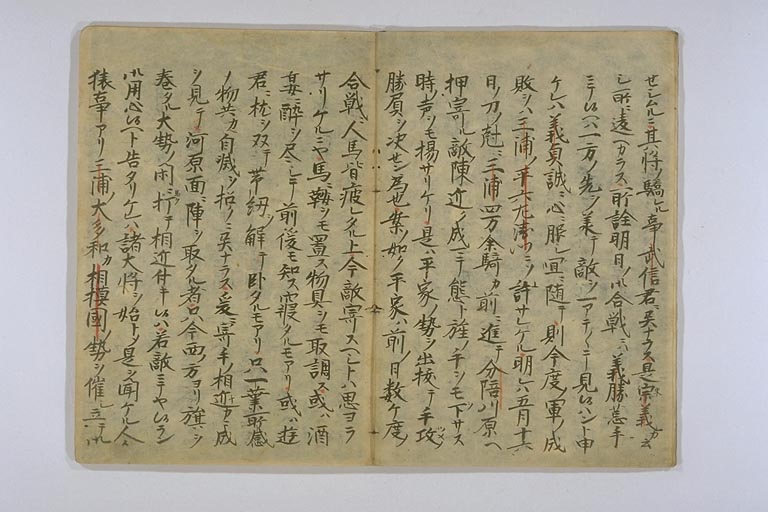 セシムルニ其将ノ驕レル事武信君ニ異ナラス是宋義カ云
シ所ニ違カラス所詮明日ノ合戦ニハ義勝恙手
ニテ候ヘハ一方ノ先ヲ美テ敵ヲ一アテアテヽ見候ハント申
ケレハ義貞誠ニ心ニ服シ宜ニ随テ則今度ノ軍ノ成
敗ヲハ三浦ノ平六左衛門ニソ許サレケル明レハ五月十六
日ノ刀ノ尅ニ三浦四万余騎カ前ニ進テ分陪河原ヘ
押寄ル敵陳近ク成マテ態ト旌ノ手ヲモ下サス
時ノ声ヲモ揚サリケリ是ハ平家ノ勢ヲ出抜テ手攻ノ
勝負ヲ決セン為也案ノ如ク平家ハ前ノ日数ケ度ノ
合戦ニ人馬皆疲レタル上今敵寄スヘシトハ思ヨラ
サリケルニヤ馬ニ鞍ヲモ置ス物具ヲモ取調ス或ハ酒
宴ニ酔ヲ尽シテ前後モ知ス寝タルモアリ或ハ遊
君ニ枕ヲ双テ帯紐ヲ解テ臥タルモアリ只一業所感
ノ物共カ自滅ヲ招クニ異ナラス爰ニ寄手ノ相近カ成
ヲ見テ河原面ニ陣ヲ取タル者只今西ノ方ヨリ旗ヲ
巻タル大勢ノ閑ニ打テ相近付キ候ハ若敵ニテヤ候ラン
御用心候ヘト告タリケレハ諸大将ヲ始トメ是ヲ聞ケル人
猿事アリ三浦ノ大多和カ相模国ノ勢ヲ催シ立テ